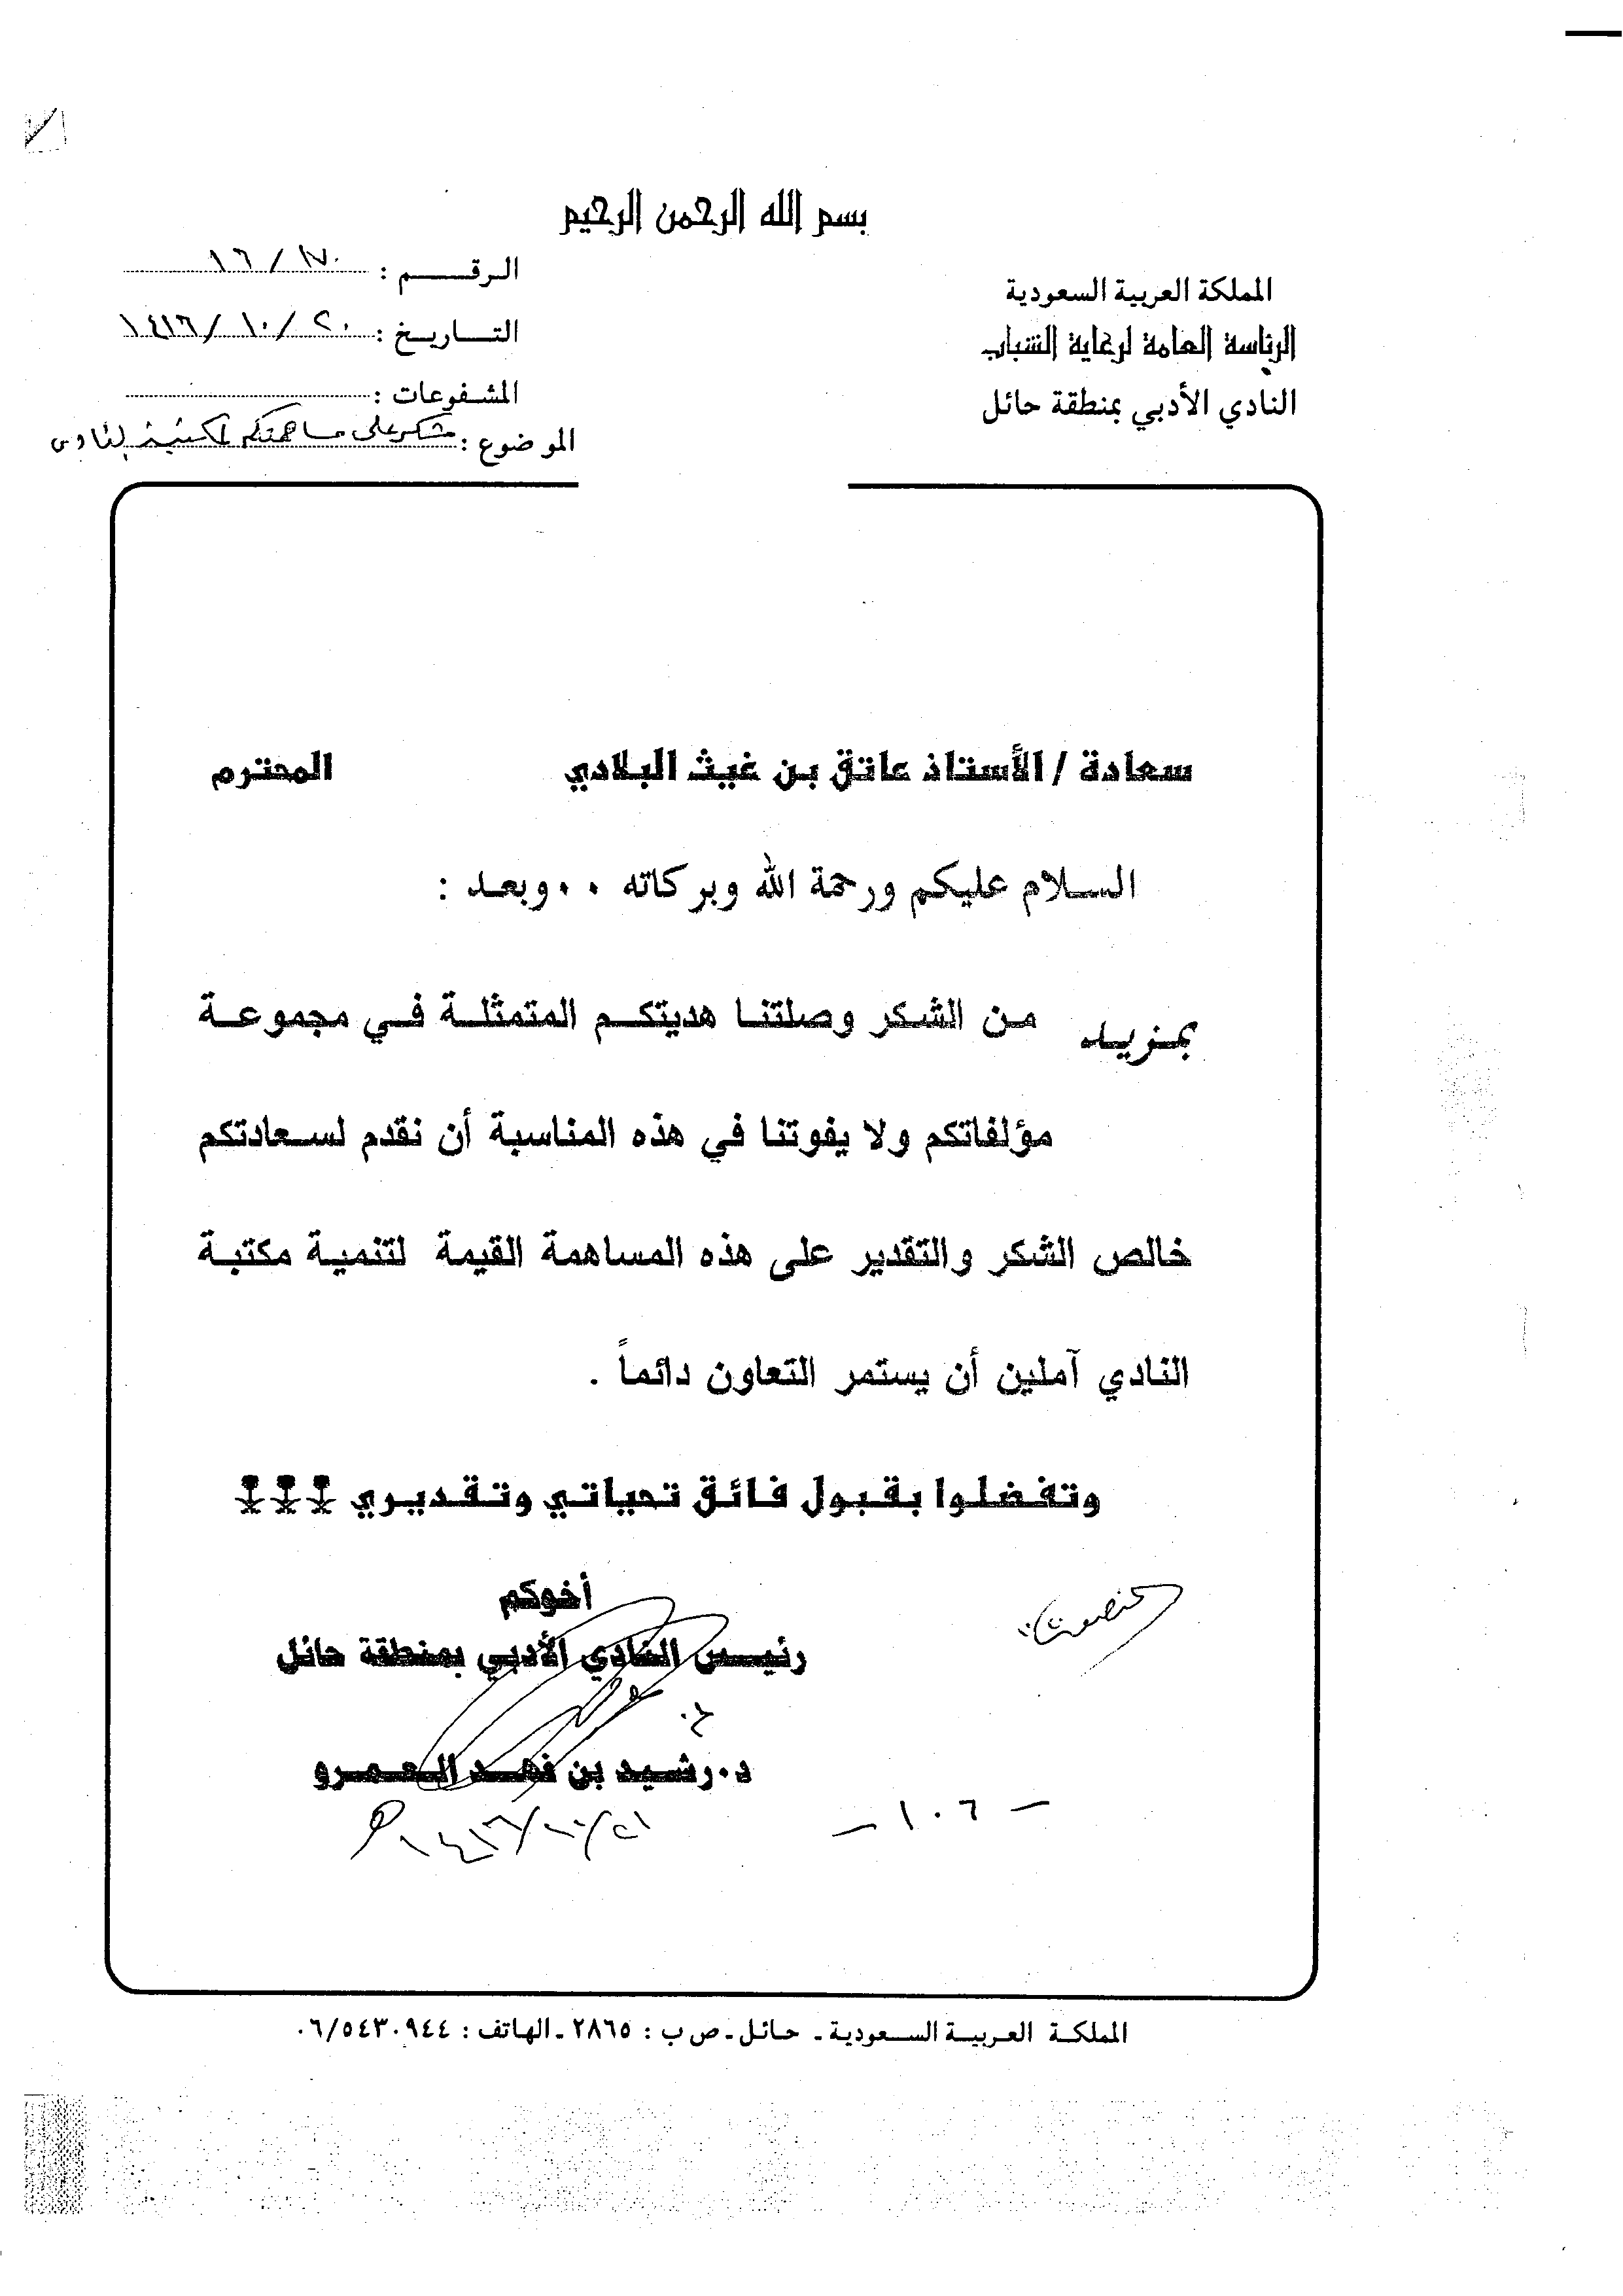 بسم الله الرحمن الرحيم
المملكة العربية السعودية
الرئاسة العامة لرعاية الشباب
النادي الأدبي بمنطقة حائل
الرقــــم :
التــاريــخ : ٢٠ / ١٠ / ١٤١٦
المشـفوعات :
الموضوع : شكر على مساهمتكم لمكتبة النادي
سعادة / الأستاذ عاتق بن غيث البلادي المحترم
السلام عليكم ورحمة الله وبركاته ٠٠ وبعد :
بمزيد من الشكر وصلتنا هديتكم المتمثلة في مجموعة
مؤلفاتكم ولا يفوتنا في هذه المناسبة أن نقدم لسعادتكم
خالص الشكر والتقدير على هذه المساهمة القيمة لتنمية مكتبة
النادي آملين أن يستمر التعاون دائماً .
وتفضلوا بقبول فائق تحياتي وتقديري
أخوكم
رئيس النادي الأدبي بمنطقة حائل
د٠رشيد بن فهد العمرو
٢١/١٠/١٤١٦
– ١٠٦ –
المملكة العربية السعودية ـ حائل ـ ص ب : ٢٨٦٥ ـ الهاتف : ٠٦/٥٤٣٠٩٤٤